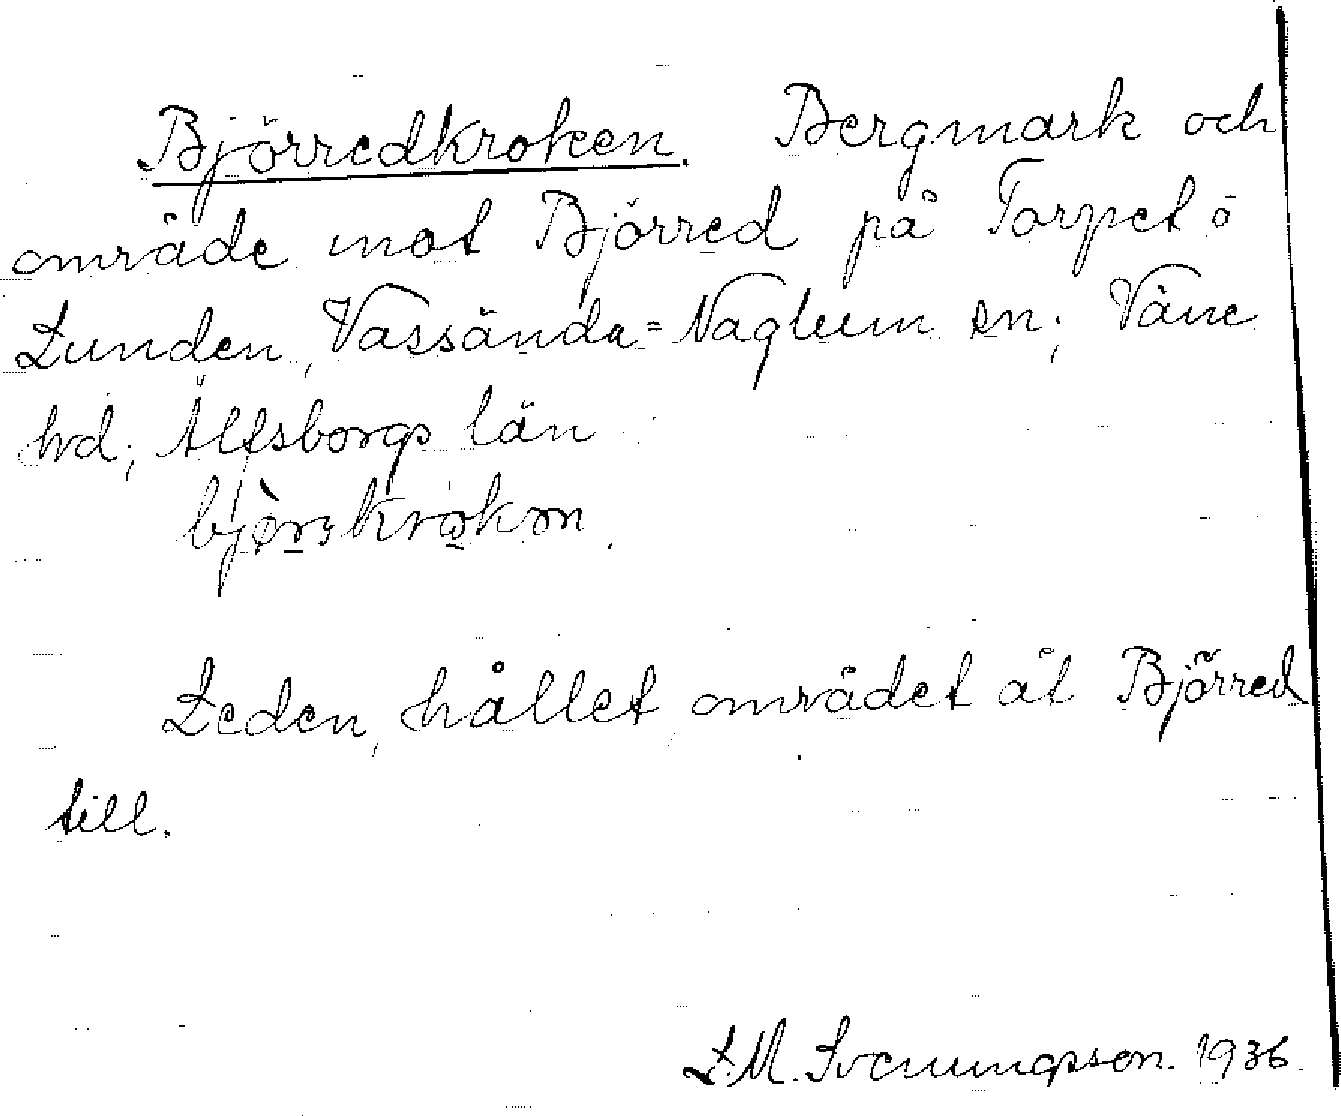 Björredkroken. Bergmark och
område mot Björred på Torpet o
Lunden, Vassända=Naglum sn; Väne
hd; Älfsborgs län
Leden, hållet, området åt Björred
till.
L.M. Svenungsson. 1936